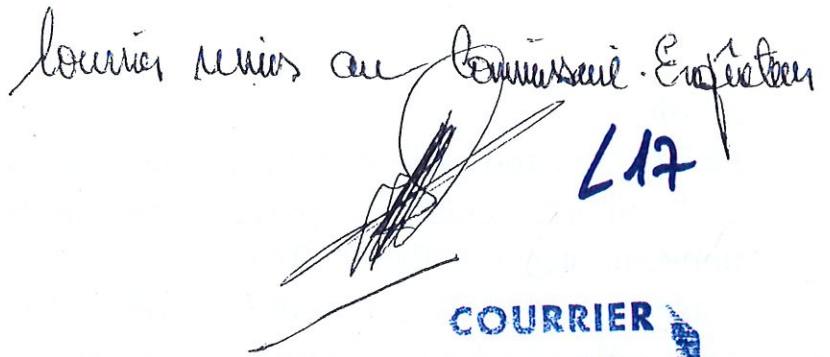 Courrier remis au Commissaire-Enquêteur
L17
COURRIER